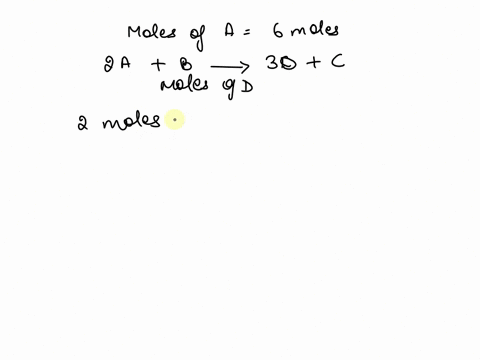 Moles of A = 6 moles
2A + B → 3D + C
Moles of D
2 moles